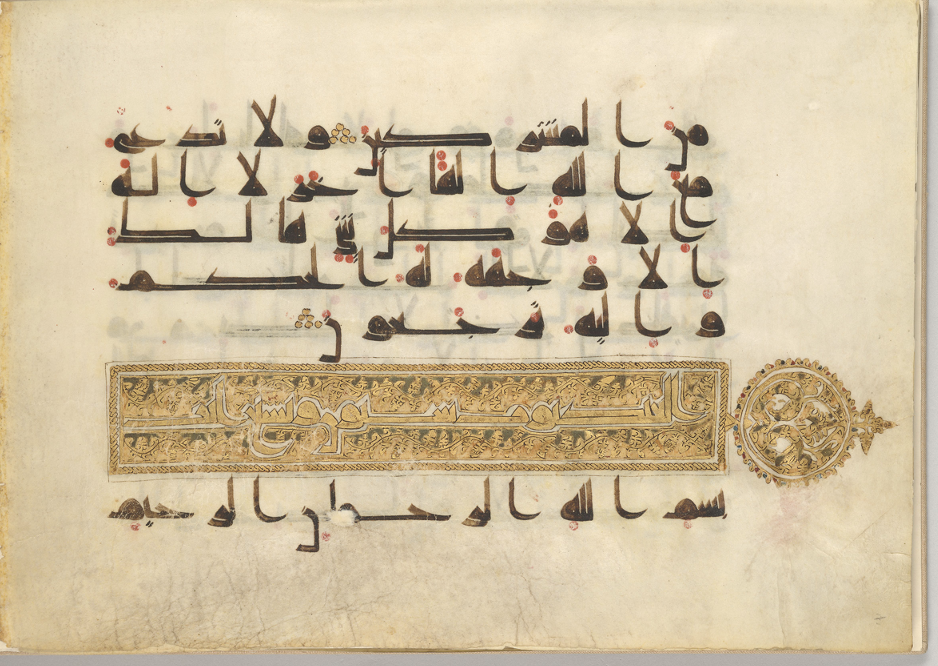 من المشركين ولا تدع مع
الله الها اخر لا اله
الا هو كل شي هالك
الا وجهه له الحكم
واليه ترجعون
العنكبوت ستون وتسع ايات
بسم الله الرحمن الرحيم